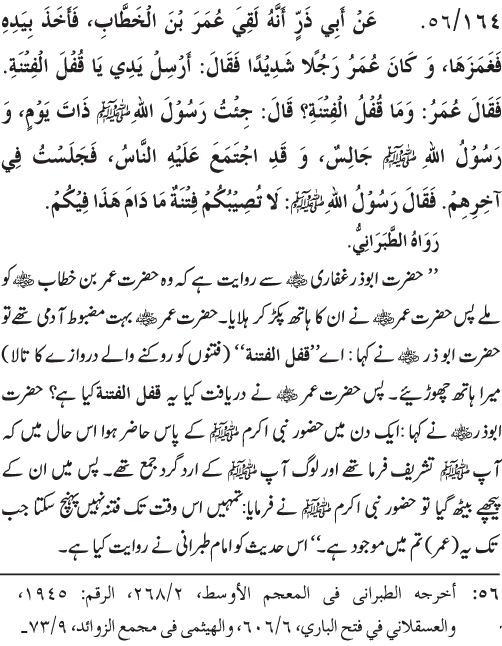 ١٦٤/٥٦. عَنْ أَبِي ذَرٍّ أَنَّهُ لَقِيَ عُمَرَ بْنَ الْخَطَّابِ، فَأَخَذَ بِيَدِهِ
فَغَمَزَهَا، وَ كَانَ عُمَرُ رَجُلًا شَدِيْدًا فَقَالَ: أَرْسِلْ يَدِي يَا قُفْلَ الْفِتْنَةِ.
فَقَالَ عُمَرُ: وَمَا قُفْلُ الْفِتْنَةِ؟ قَالَ: جِئْتُ رَسُوْلَ اللهِ ﷺ ذَاتَ يَوْمٍ، وَ
رَسُوْلُ اللهِ ﷺ جَالِسٌ، وَ قَدِ اجْتَمَعَ عَلَيْهِ النَّاسُ، فَجَلَسْتُ فِي
آخِرِهِمْ. فَقَالَ رَسُوْلُ اللهِ ﷺ: لَا تُصِيْبُكُمْ فِتْنَةٌ مَا دَامَ هَذَا فِيْكُمْ.
رَوَاهُ الطَّبَرَانِيُّ.
’’حضرت ابوذر غفاری ؓ سے روایت ہے کہ وہ حضرت عمر بن خطاب ؓ کو
ملے پس حضرت عمر ؓ نے ان کا ہاتھ پکڑ کر ہلایا۔ حضرت عمر ؓ بہت مضبوط آدمی تھے تو
حضرت ابو ذر ؓ نے کہا : اے ’’قفل الفتنة‘‘ (فتنوں کو روکنے والے دروازے کا تالا)
میرا ہاتھ چھوڑیئے۔ پس حضرت عمر ؓ نے دریافت کیا یہ قفل الفتنة کیا ہے؟ حضرت
ابوذر ؓ نے کہا : ایک دن میں حضور نبی اکرم ﷺ کے پاس حاضر ہوا اس حال میں کہ
آپ ﷺ تشریف فرما تھے اور لوگ آپ ﷺ کے ارد گرد جمع تھے۔ پس میں ان کے
پیچھے بیٹھ گیا تو حضور نبی اکرم ﷺ نے فرمایا: تمہیں اس وقت تک فتنہ نہیں پہنچ سکتا جب
تک یہ (عمر) تم میں موجود ہے۔‘‘ اس حدیث کو امام طبرانی نے روایت کیا ہے۔
٥٦: أخرجه الطبراني في المعجم الأوسط، ٢/٢٦٨، الرقم: ١٩٤٥،
والعسقلاني في فتح الباري، ٦/٦٠٦، والهيثمي في مجمع الزوائد، ٩/٧٣۔